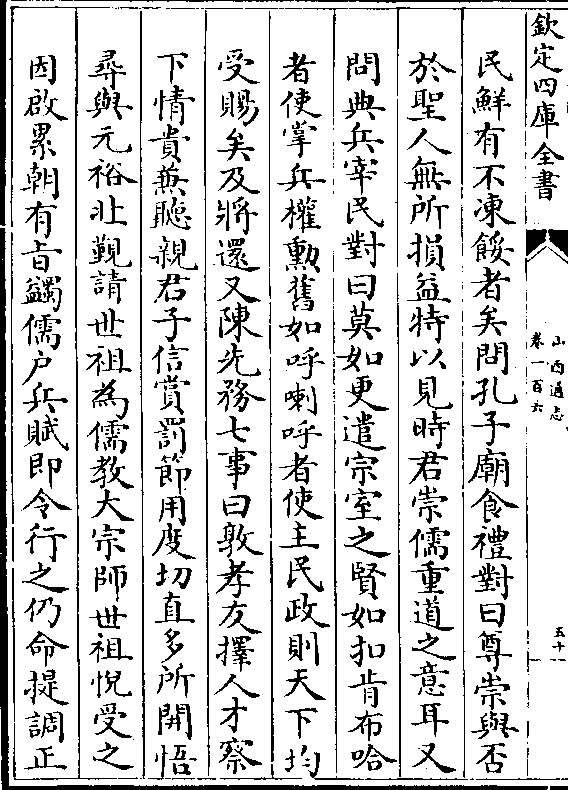 欽定四庫全書
山西通志
卷一百六
五十
民鮮有不凍餒者矣問孔子廟食禮對曰尊崇與否
於聖人無所損益特以見時君崇儒重道之意耳又
問典兵宰民對曰莫如更遣宗室之賢如扣肯布哈
者使掌兵權勲舊如呼喇呼者使主民政則天下均
受賜矣及將還又陳先務七事曰敦孝友擇人才察
下情貴兼聽親君子信賞罰節用度切直多所開悟
尋與元裕北覲請世祖為儒教大宗師世祖悅受之
因啟累朝有旨蠲儒户兵賦即令行之仍命提調正